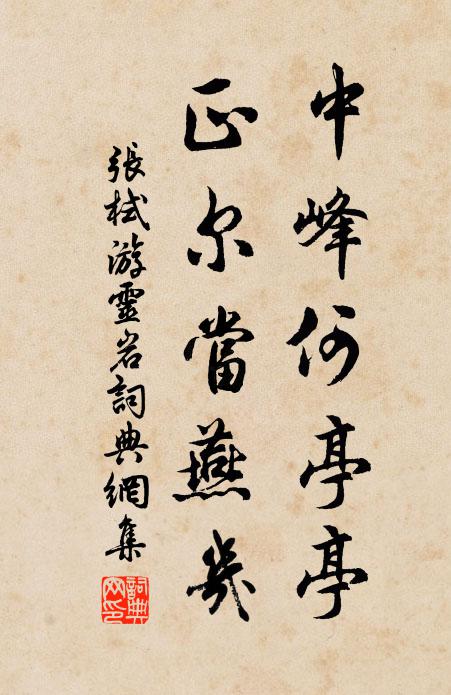 中峰何亭亭
正尔當燕几
張栻游靈岩詞典網集
詞典
网印